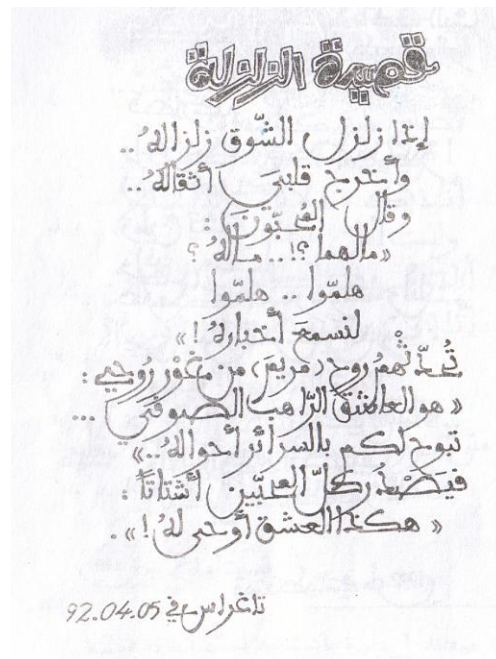 قصيدة الزلزلة
إذا زلزل الشّوق زلزالهُ..
وأخرج قلبيَ أثقالهُ..
وقال المُحبّونَ :
«مالهما ؟!.. مالهُ ؟
هلمّوا .. هلمّوا
لنسمع أخبارهُ !»
تُحدّثْهمُ روح (مريم) من غوْر روحي :
« هو العاشق الرّاهب الصّوفي ...
تبوح لكم بالسرائر أحوالهُ..»
فيَصْدُر كلّ المحبّين أشتاتاً :
« هكذا العشق أوحى لهُ !».
تاغراس في 92.04.05